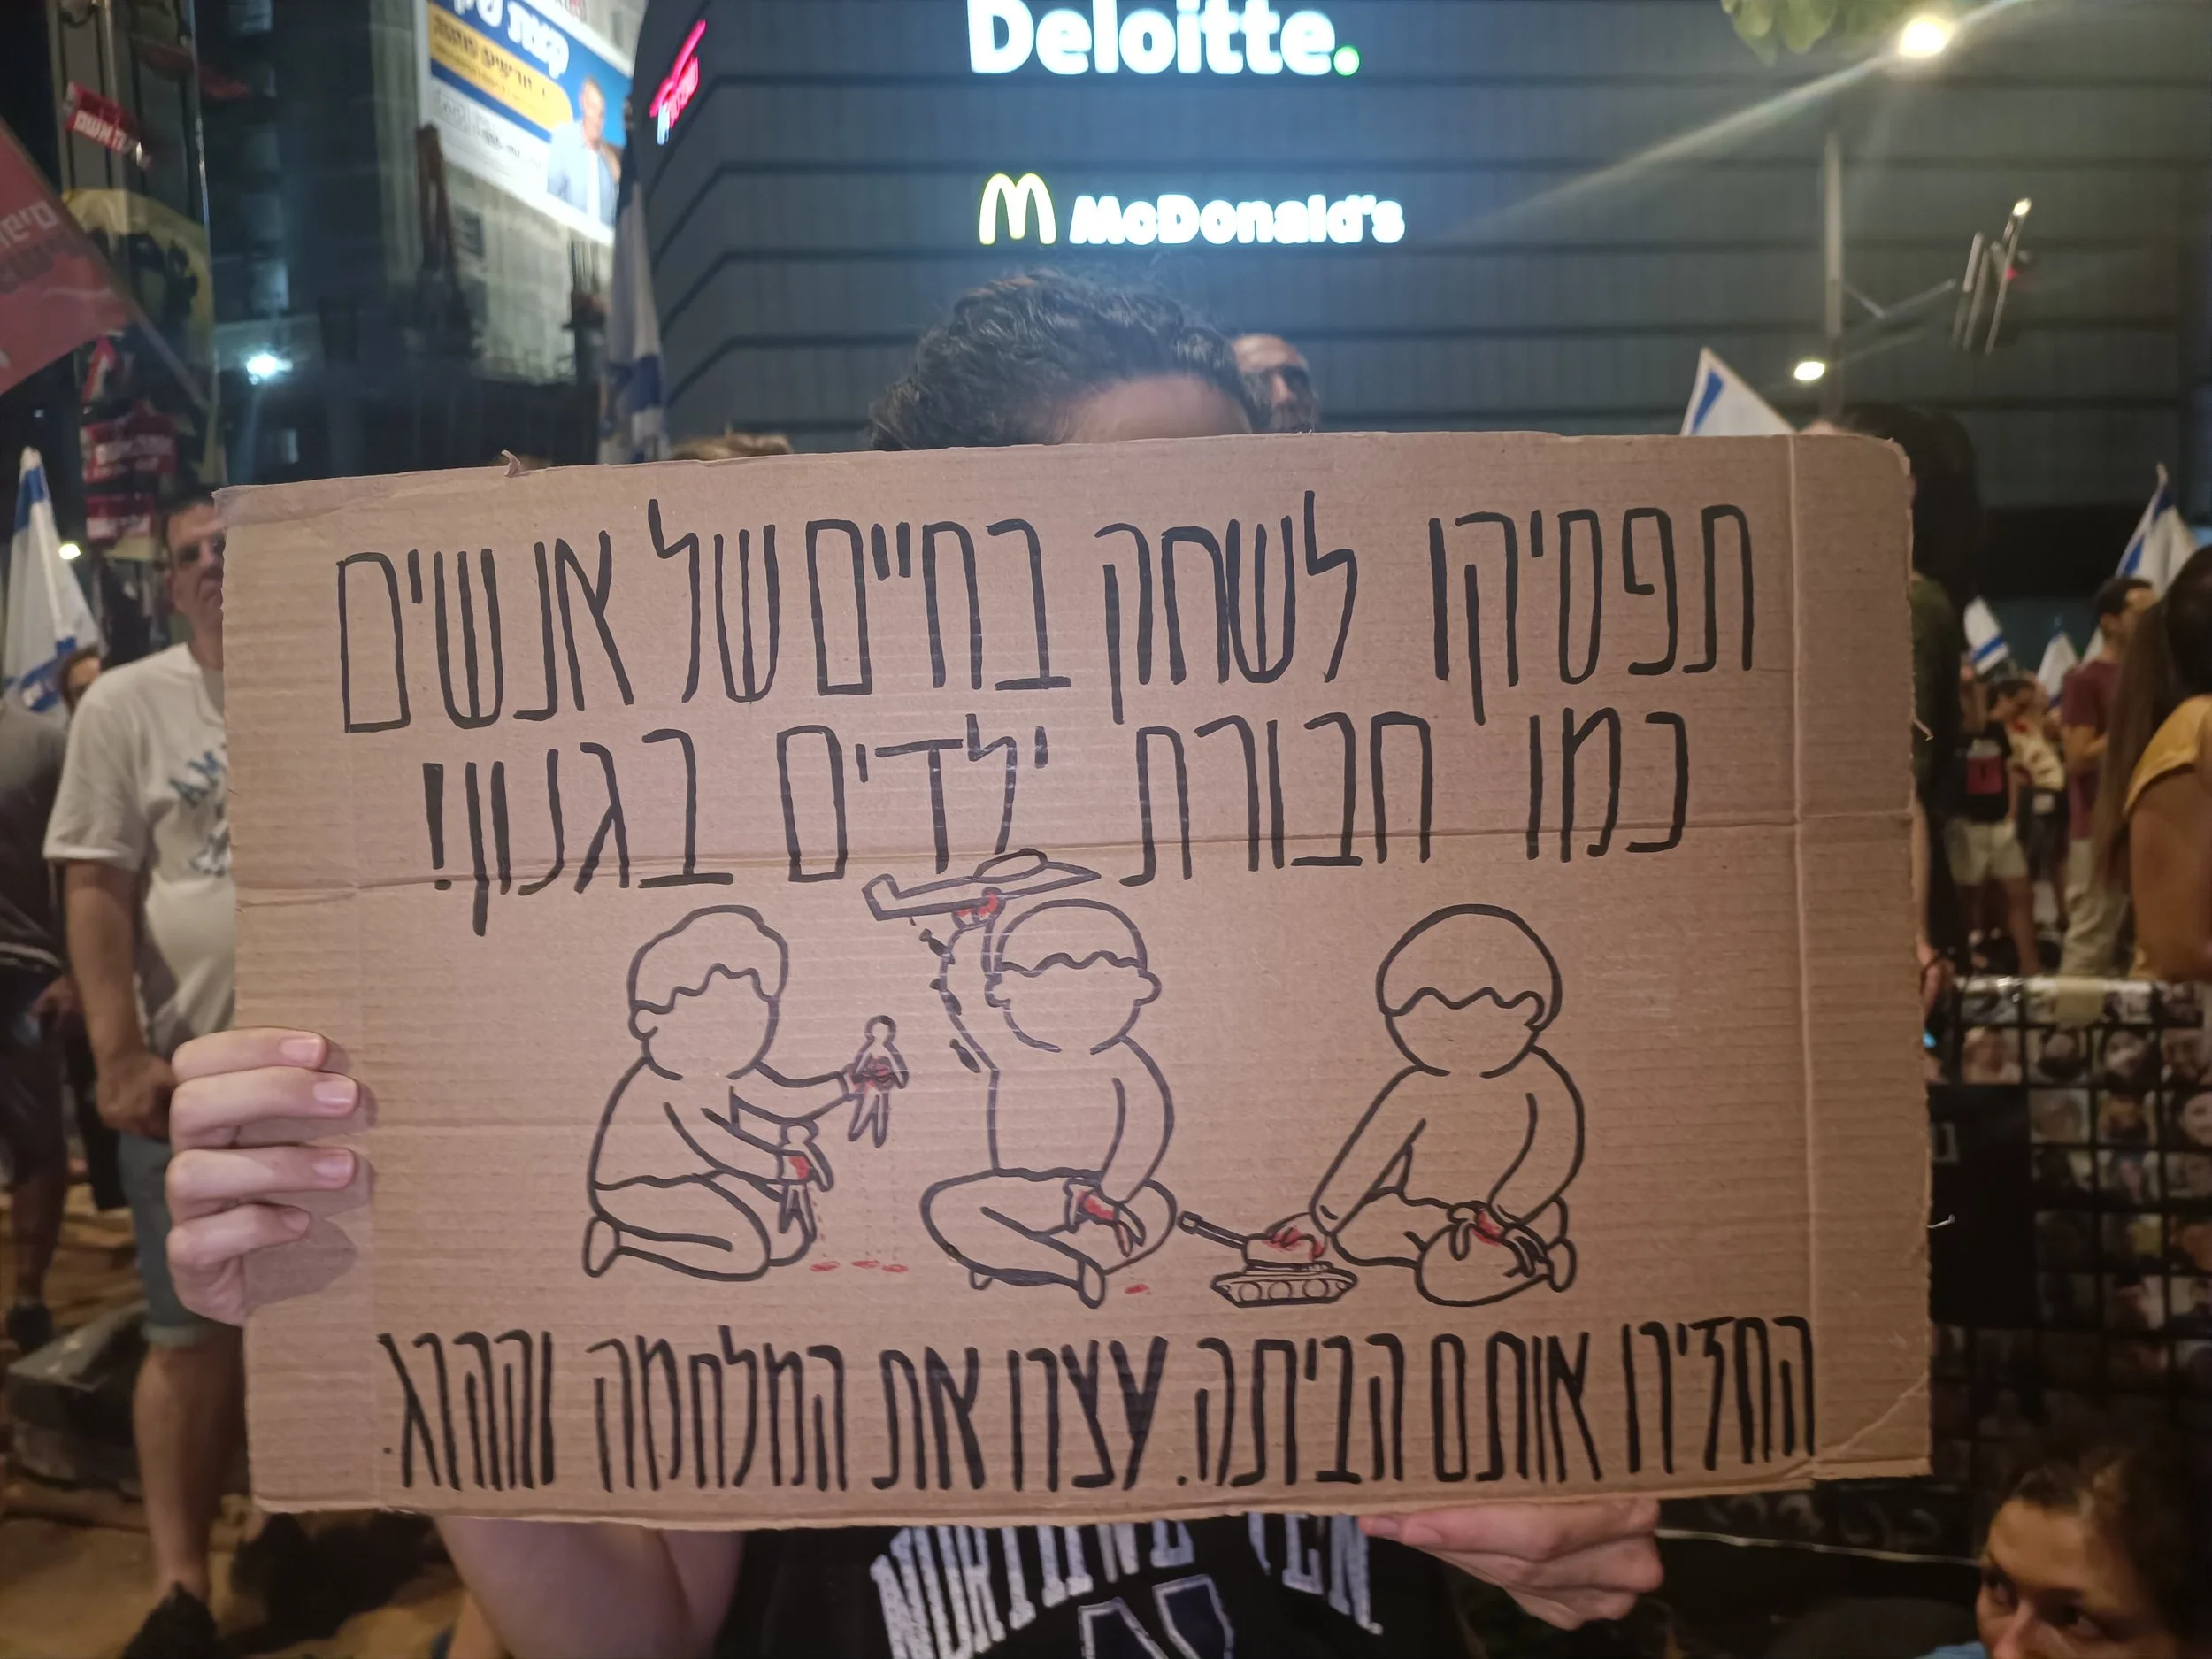 Deloitte.
McDonald's
תפסיקו לשחק בחיים של אנשים
כמו חבורת ילדים בגנון!
החזירו אותם הביתה. עצרו את המלחמה וההרג.